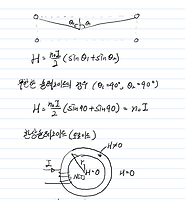 θ₁ θ₂
H = n₀I/2 (sinθ₁ + sinθ₂)
무한장 솔레노이드의 경우 (θ₁=90°, θ₂=90°)
H = n₀I/2 (sin90 + sin90) = n₀I
환상솔레노이드 (트로이드)
H≠0
I
r
H=0
H=0
N(T)